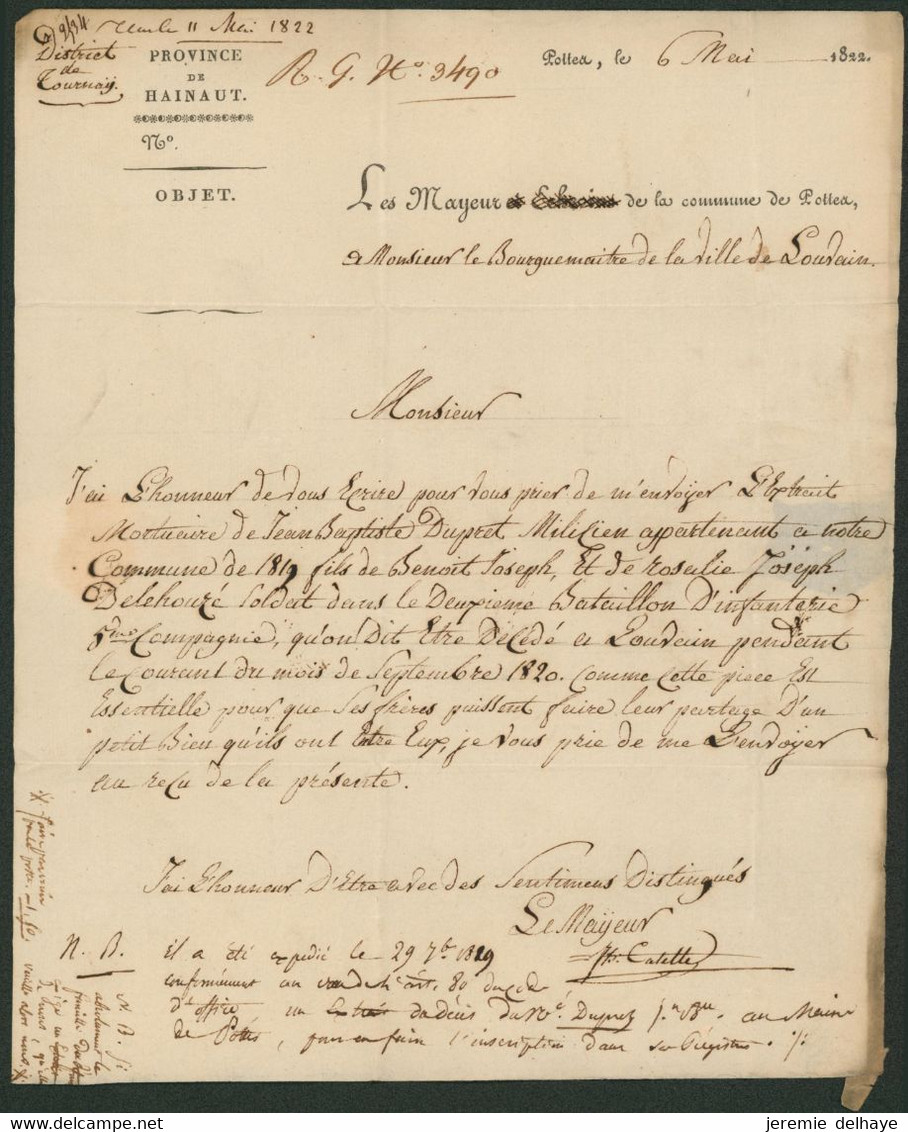 11 Mai 1822
District
de
Tournay.
PROVINCE
DE
HAINAUT.
Nº.
OBJET.
R. G. Nº. 3490
Pottes, le 6 Mai 1822.
Les Mayeur et Echevins de la commune de Pottes,
a Monsieur le Bourguemaitre de la ville de Louvain.
Monsieur
J'ai L'honneur de vous Ecrire pour vous prier de m'envoÿer L'Extrait
Mortuaire de Jean Baptiste Dupret Milicien appartenant a notre
Commune de 1819 fils de Benoit Joseph, Et de rosalie Joseph
Delehouzé Soldat dans le Deuxieme Bataillon D'infanterie
5me Compagnie, qu'on Dit Etre Décédé a Louvain pendant
le courant du mois de Septembre 1820. comme cette piece Est
Essentielle pour que Ses frères puissent faire leur partage D'un
petit Bien qu'ils ont Entre Eux, je vous prie de me L'envoÿer
au reçu de la présente.
J'ai L'honneur D'Etre avec des Sentimens Distingués
Le Maÿeur
N. B. il a été expedié le 29 7bre 1819
conformément au art. 80 du code
d'office un du décès du Dupret au Maire
de Pottes, pour en faire l'inscription dans ses Régistres
N. B. Si
jeremie delhaye